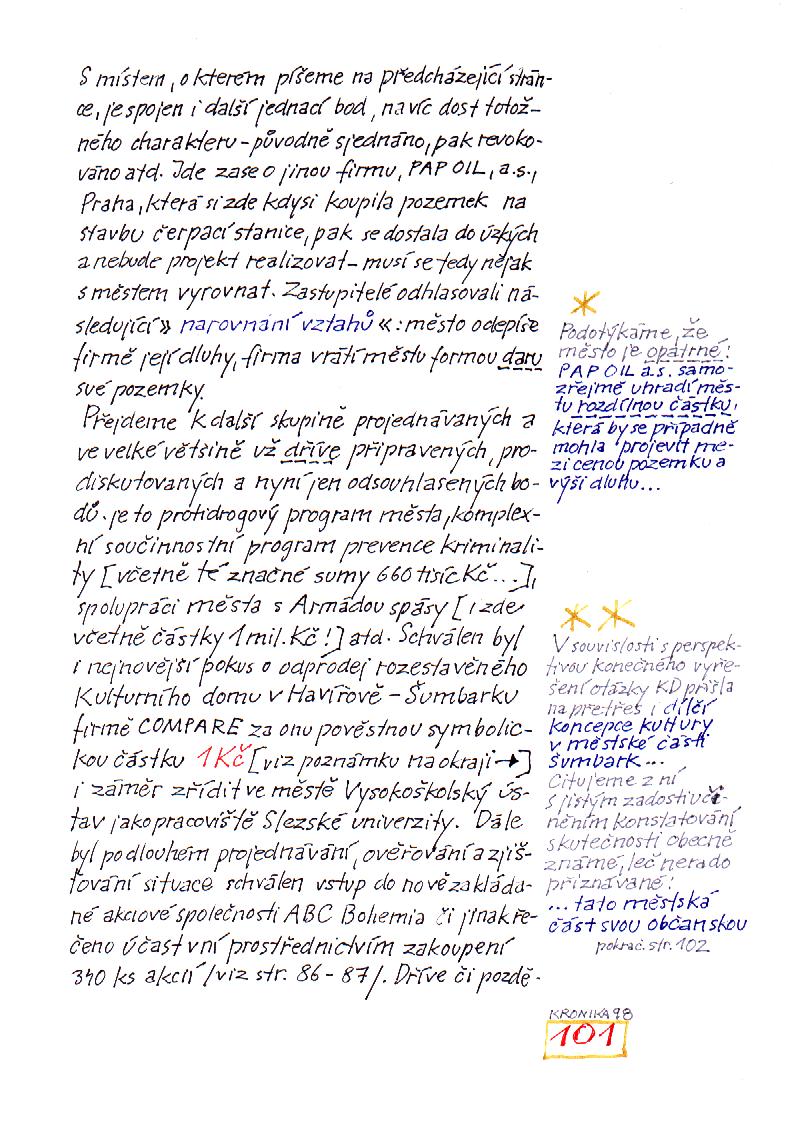 S místem, o kterém píšeme na předcházející strán-
ce, je spojen i další jednací bod, navíc dost totož-
ného charakteru – původně sjednáno, pak revoko-
váno atd. Jde zase o jinou firmu, PAP OIL, a.s.,
Praha, která si zde kdysi koupila pozemek na
stavbu čerpací stanice, pak se dostala do úzkých
a nebude projekt realizovat – musí se tedy nějak
s městem vyrovnat. Zastupitelé odhlasovali ná-
sledující » narovnání vztahů «: město odepíše
firmě její dluhy, firma vrátí městu formou daru
své pozemky.
Přejdeme k další skupině projednávaných a
ve velké většině už dříve připravených, pro-
diskutovaných a nyní jen odsouhlasených bo-
dů. je to protidrogový program města, komplex-
ní součinnostní program prevence kriminali-
ty [včetně té značné sumy 660 tisíc Kč...],
spolupráci města s Armádou spásy [i zde
včetně částky 1 mil. Kč!] atd. Schválen byl
i nejnovější pokus o odprodej rozestavěného
Kulturního domu v Havířově – Šumbarku
firmě COMPARE za onu pověstnou symbolic-
kou částku 1 Kč [viz poznámku na okraji →]
i záměr zřídit ve městě Vysokoškolský ús-
tav jako pracoviště Slezské univerzity. Dále
byl po dlouhém projednávání, ověřování a zjiš-
ťování situace schválen vstup do nově zakláda-
né akciové společnosti ABC Bohemia či jinak ře-
čeno účast v ní prostřednictvím zakoupení
340 ks akcií /viz str. 86 – 87/. Dříve či pozdě-
*
Podotýkáme, že
město je opatrné!
PAP OIL a.s. samo-
zřejmě uhradí měs-
tu rozdílnou částku,
která by se případně
mohla projevit me-
zi cenou pozemku a
výší dluhu...
* *
V souvislosti s perspek-
tivou konečného vyře-
šení otázky KD přišla
na přetřes i dílčí
koncepce kultury
v městské části
Šumbark...
Citujeme z ní
s jistým zadostiuči-
něním konstatování
skutečnosti obecně
známé, leč nerado
přiznávané:
... tato městská
část svou občanskou
pokrač. str. 102
KRONIKA 98
101